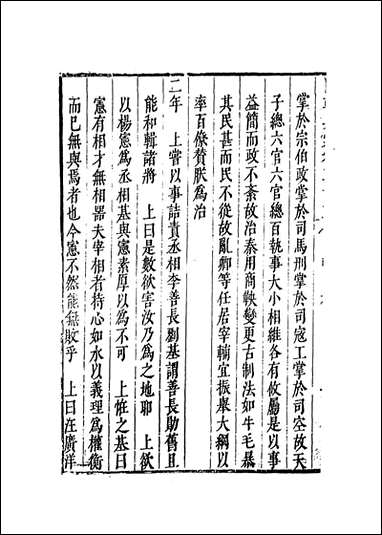 掌於宗伯政掌於司馬刑掌於司寇工掌於司空故天
子總六官六官總百執事大小相維各有攸屬是以事
益簡而政不紊故治秦用商鞅變更古制法如牛毛暴
其民甚而民不從故亂卿等任居宰輔宜振舉大綱以
率百僚贊朕為治
二年　上嘗以事詰責丞相李善長劉基謂善長勛舊且
能和輯諸將　上曰是數欲害汝乃為之地耶　上欲
以楊憲為丞相基與憲素厚以為不可　上恠之基曰
憲有相才無相器夫宰相者持心如水以義理為權衡
而已無與焉者也今憲不然能無敗乎　上曰汪廣洋